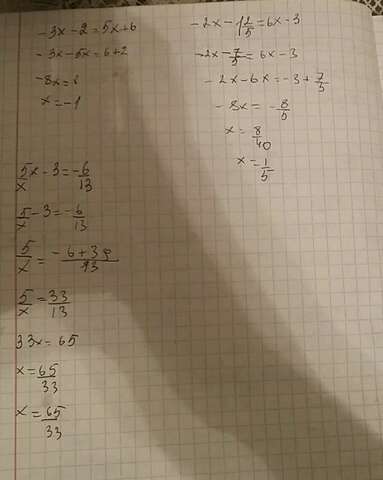 -3x-2=5x+6
-3x-5x=6+2
-8x=8
x=-1
-2x-1 2/5=6x-3
-2x-7/5=6x-3
-2x-6x=-3+7/5
-8x=-8/5
x=8/40
x=1/5
5/x x-3=-6/13
5/x-3=-6/13
5/x=-6+39/13
5/x=33/13
33x=65
x=65/33
x=65/33